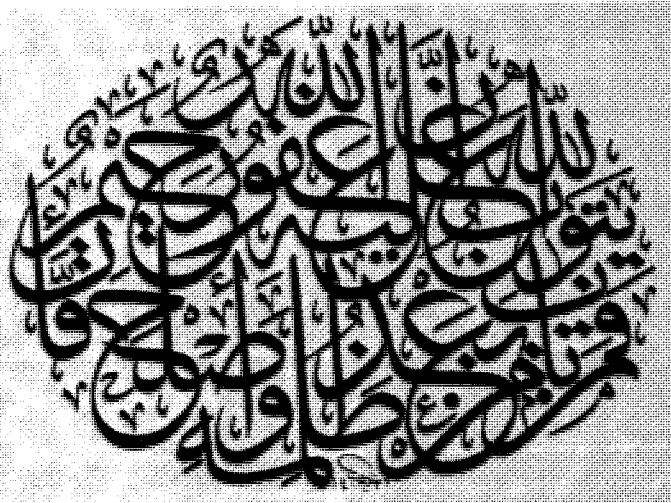 فَمَنْ تَابَ مِنْ بَعْدِ ظُلْمِهِ وَأَصْلَحَ فَإِنَّ اللَّهَ يَتُوبُ عَلَيْهِ إِنَّ اللَّهَ غَفُورٌ رَحِيمٌ